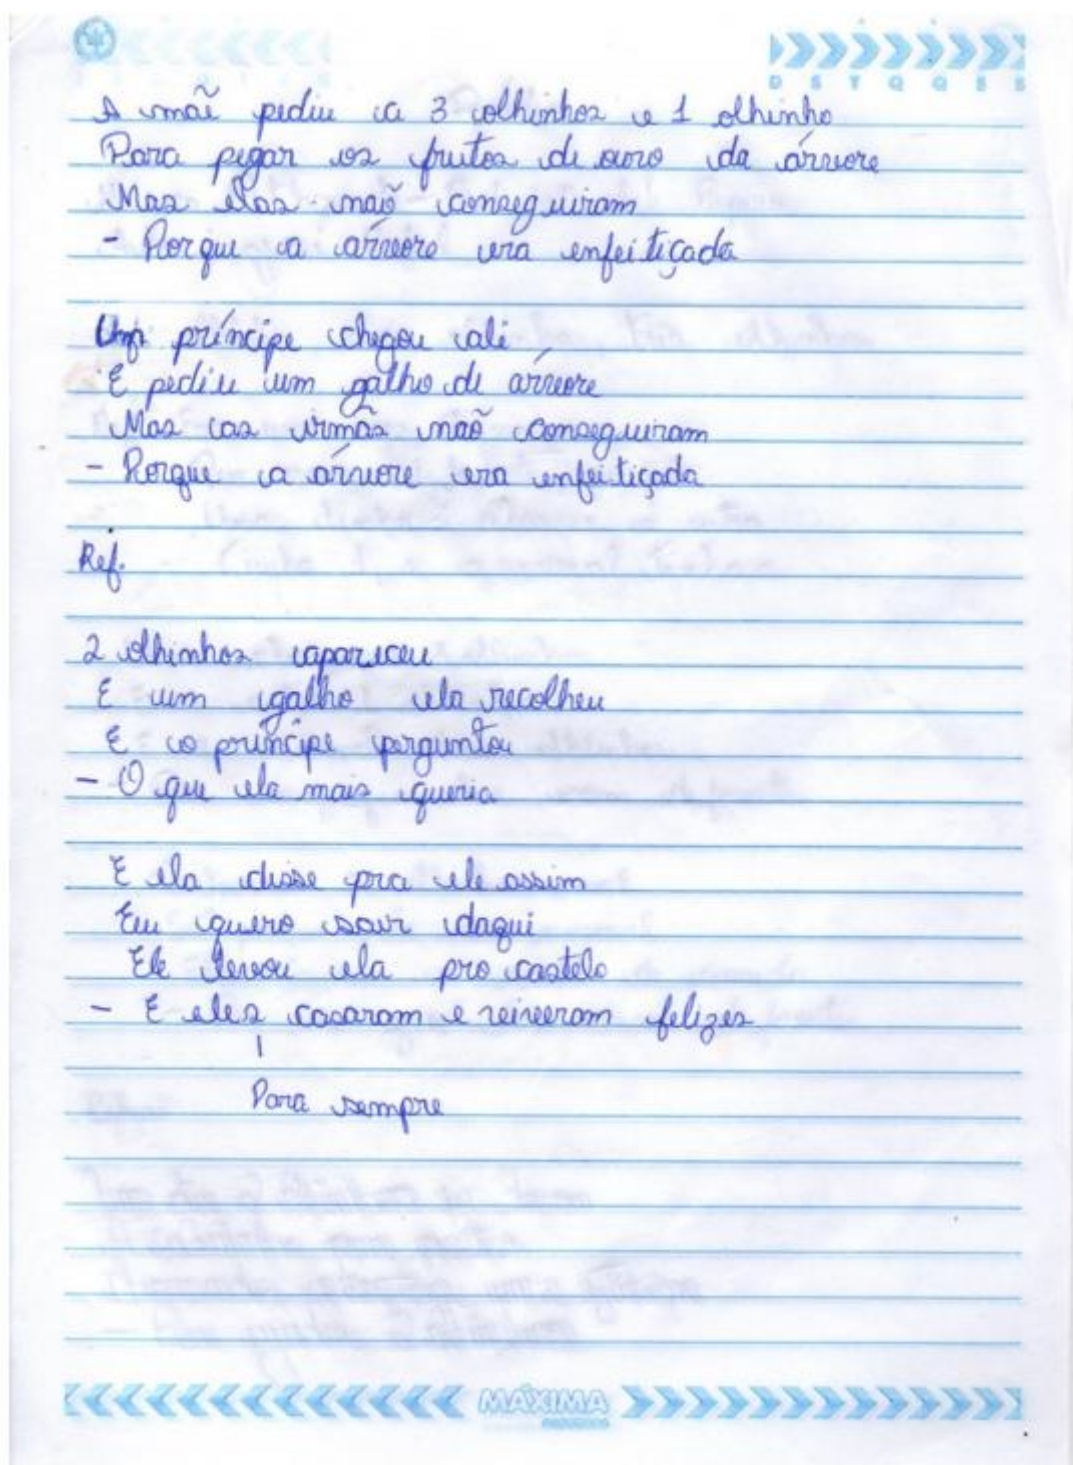 D S T Q Q S S
A mãe pediu a 3 olhinhos e 1 olhinho
Para pegar os frutos de ouro da árvore
Mas elas não conseguiram
- Porque a árvore era enfeitiçada
Um príncipe chegou ali
E pediu um galho de árvore
Mas as irmãs não conseguiram
- Porque a árvore era enfeitiçada
Ref.
2 olhinhos apareceu
E um galho ela recolheu
E o príncipe perguntou
- O que ela mais queria
E ela disse pra ele assim
Eu quero sair daqui
Ele levou ela pro castelo
- E eles casaram e viveram felizes
Para sempre
MÁXIMA